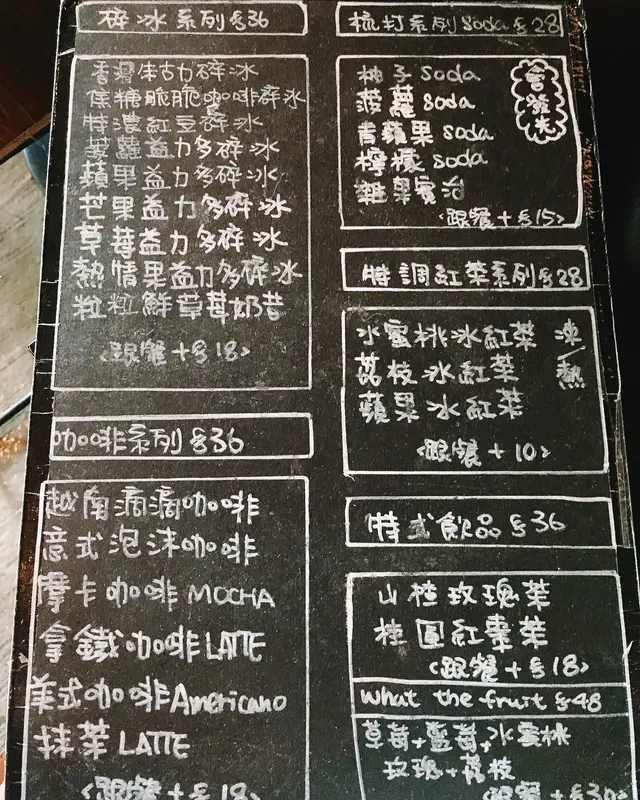 碎冰系列 $36
香濃朱古力碎冰
焦糖脆脆咖啡碎冰
特濃紅豆碎冰
菠蘿益力多碎冰
蘋果益力多碎冰
芒果益力多碎冰
草莓益力多碎冰
熱情果益力多碎冰
粒粒鮮草莓奶昔
<跟餐 + $18>
咖啡系列 $36
越南滴滴咖啡
意式泡沫咖啡
摩卡咖啡 MOCHA
拿鐵咖啡 LATTE
美式咖啡 Americano
抹茶 LATTE
<跟餐 + $18>
梳打系列 Soda $28
會發光
柚子 Soda
菠蘿 Soda
青蘋果 Soda
檸檬 Soda
糖果賓治
<跟餐 + $15>
特調紅茶系列 $28
水蜜桃冰紅茶 凍/熱
荔枝冰紅茶
蘋果冰紅茶
<跟餐 + 10>
特式飲品 $36
山楂玫瑰茶
桂圓紅棗茶
<跟餐 + $18>
What the fruit $48
草莓+藍莓+水蜜桃
玫瑰+荔枝
<跟餐 + $30>